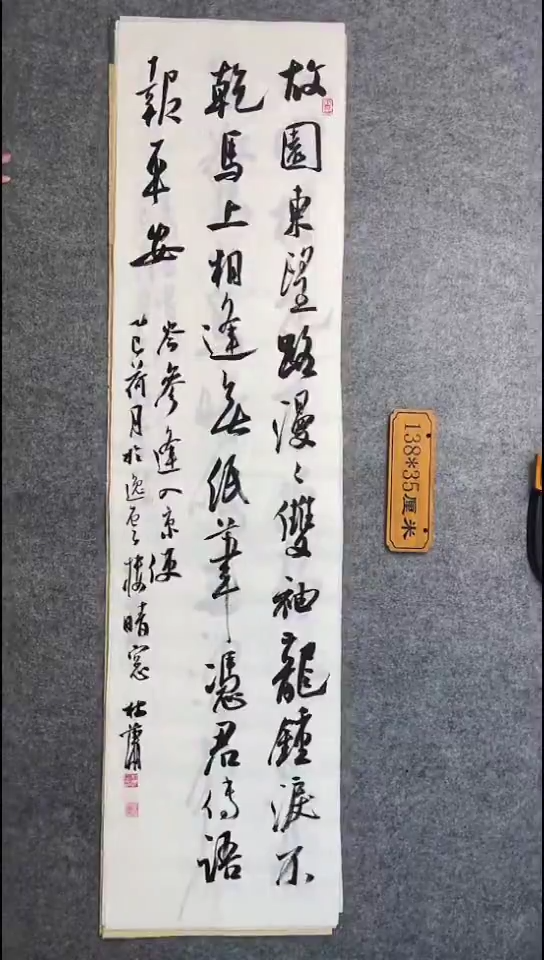 故園東望路漫々雙袖龍鍾淚不
乾馬上相逢無紙筆憑君傳語
報平安
岑參逢入京使
乙巳荷月於逸石之樓晴窓 杜蕭
138*35厘米